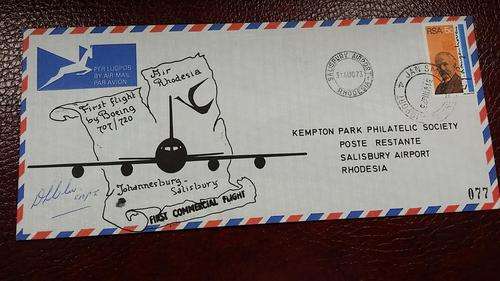 PER LUGPOS
BY AIR MAIL
PAR AVION
Air
Rhodesia
First flight
by Boeing
707/720
Johannesburg-
Salisbury
FIRST COMMERCIAL FLIGHT
SALISBURY AIRPORT
RHODESIA
RSA
JAN SMUTS
KEMPTON PARK PHILATELIC SOCIETY
POSTE RESTANTE
SALISBURY AIRPORT
RHODESIA
077